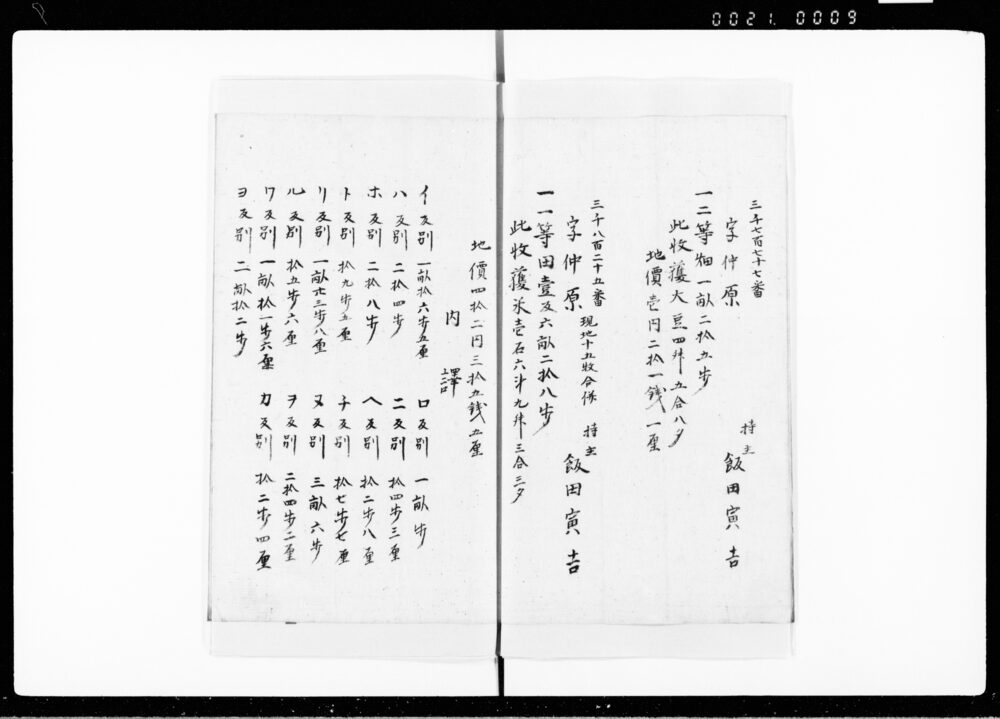 0021 0009
三千七百七十七番
字仲原 持主 飯田寅吉
一二等畑一畝二拾五歩
此收穫大豆四舛五合八夕
地價壱円二拾一銭一厘
三千八百二十五番 現地十五枚合併
字仲原 持主 飯田寅吉
一一等田壹反六畝二拾八歩
此收穫米壱石六斗九舛三合三夕
地價四拾二円三拾五銭五厘
内譯
イ反別 一畝拾六歩五厘 ロ反別 一畝歩
ハ反別 二拾四歩 ニ反別 拾四歩三厘
ホ反別 二拾八歩 ヘ反別 拾二歩八厘
ト反別 拾九歩五厘 チ反別 拾七歩七厘
リ反別 一畝廿三歩八厘 ヌ反別 三畝六歩
ル反別 拾五歩六厘 ヲ反別 二拾四歩二厘
ワ反別 一畝拾一歩六厘 カ反別 拾二歩四厘
ヨ反別 二畝拾二歩